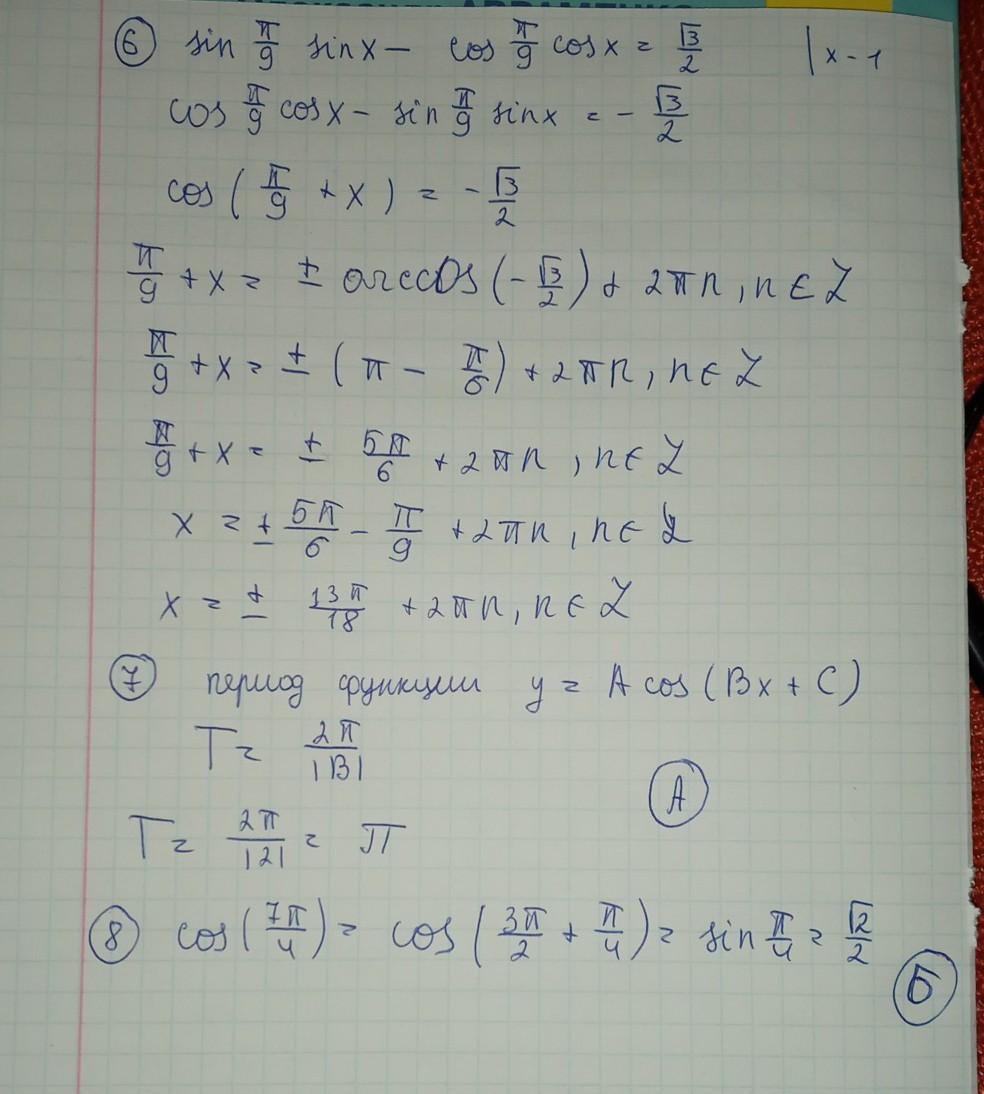 6 sin π/9 sin x – cos π/9 cos x = √3/2 | x – 1
cos π/9 cos x – sin π/9 sin x = – √3/2
cos ( π/9 + x ) = – √3/2
π/9 + x = ± arccos (– √3/2) + 2πn, n ∈ Z
π/9 + x = ± ( π – π/6) + 2πn, n ∈ Z
π/9 + x = ± 5π/6 + 2πn, n ∈ Z
x = ± 5π/6 – π/9 + 2πn, n ∈ Z
x = ± 13π/18 + 2πn, n ∈ Z
7 период функции y = A cos (Bx + C)
T = 2π/|B|
А
T = 2π/|2| = π
8 cos (7π/4) = cos (3π/2 + π/4) = sin π/4 = √2/2
Б